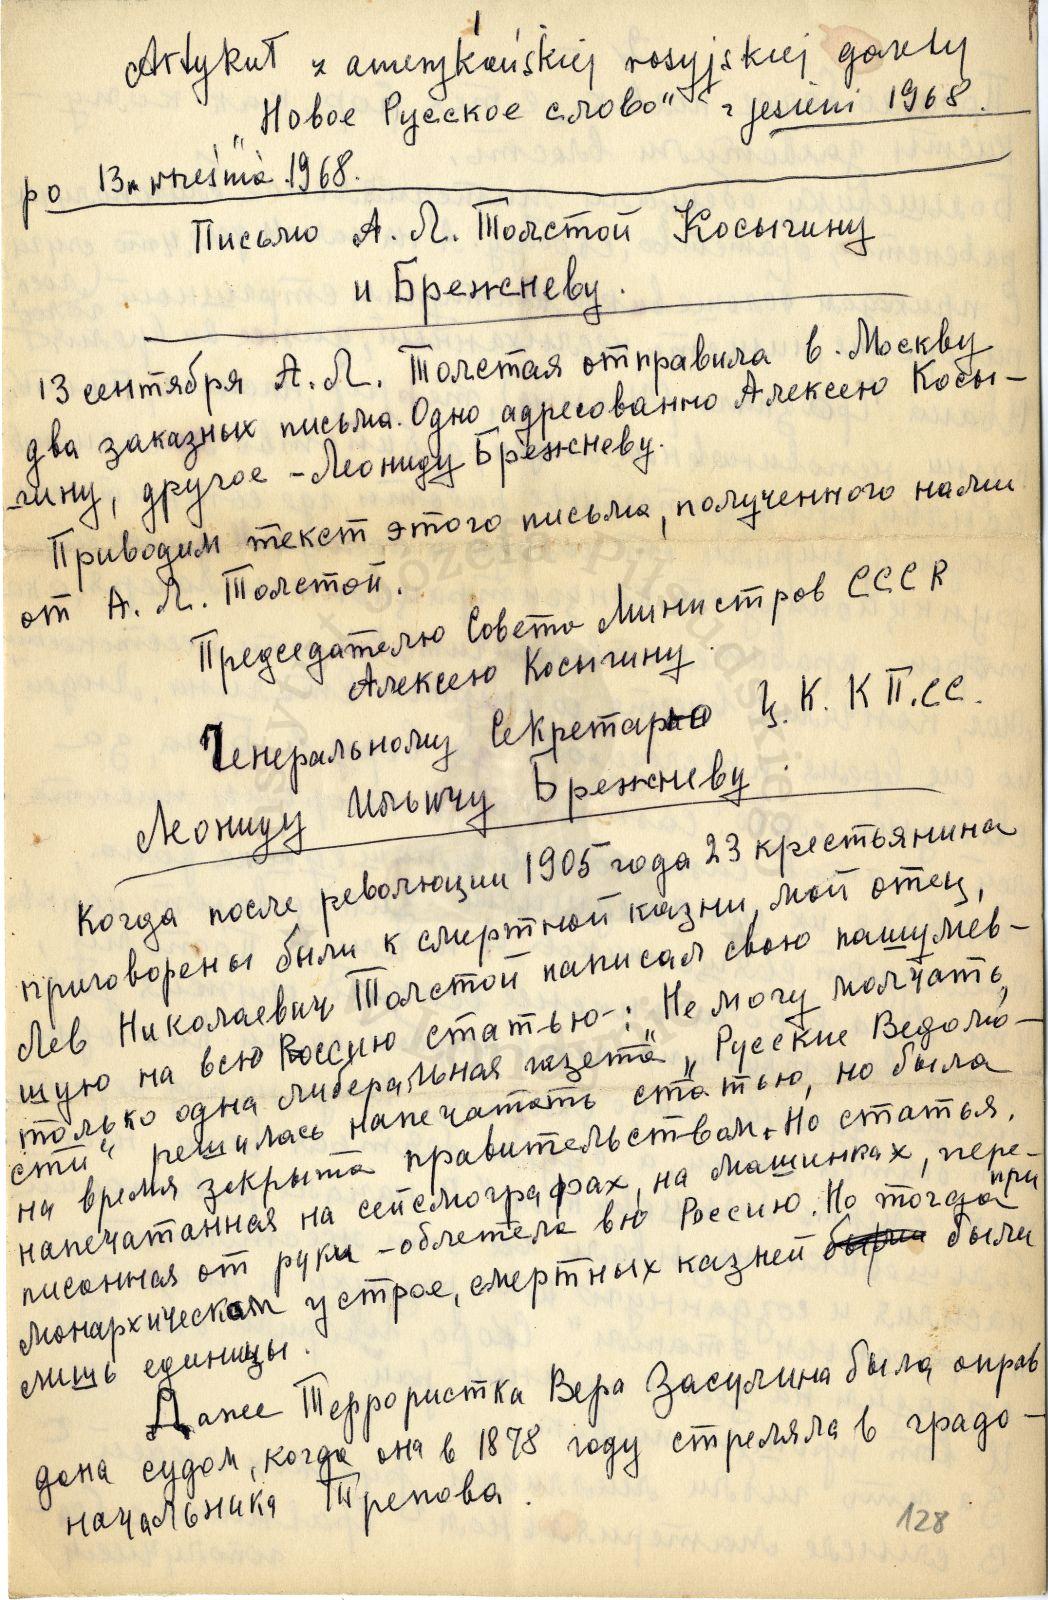 1
Artykuł z amerykańskiej rosyjskiej gazety
„Новое Русское слово" z jesieni 1968.
po 13 września 1968.
Письмо А. Л. Толстой Косыгину
и Брежневу.
13 сентября А. Л. Толстая отправила в Москву
два заказных письма. Одно адресованно Алексею Косы-
-гину, другое – Леониду Брежневу.
Приводим текст этого письма, полученного нами
от А. Л. Толстой.
Председателю Совета Министров СССR
Алексею Косыгину.
Генеральному Секретарю Ц. К. К П.СС.
Леониду Ильичу Брежневу.
Когда после революции 1905 года 23 крестьянина
приговорены были к смертной казни, мой отец,
Лев Николаевич Толстой написал свою нашумев-
шую на всю Россию статью: Не могу молчать,
только одна либеральная газета „Русские Ведомо-
сти" решилась напечатать статью, но была
на время закрыта правительством. Но статья,
напечатанная на сейсмографах, на машинках, пере-
писанная от руки – облетела вю Россию. Но тогда при
монархическом устрое, смертных казней были
лишь единицы.
Даже Террористка Вера Засулина была оправ
дана судом, когда она в 1878 году стреляла в градо-
начальника Трепова.
128